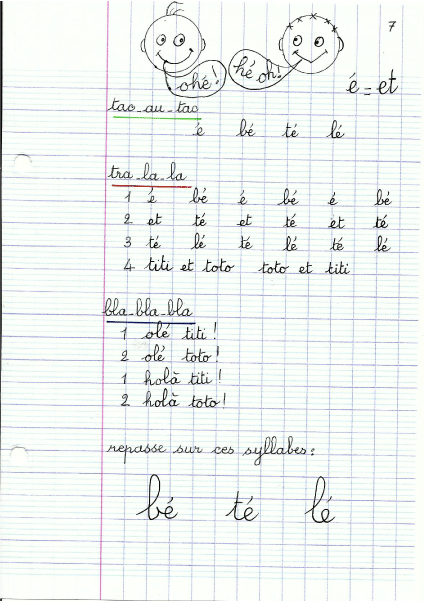 7
ohé! hé oh!
é = et
tac-au-tac
é bé té lé
tra-la-la
1 é bé é bé é bé
2 et té et té et té
3 té lé té lé té lé
4 titi et toto toto et titi
bla-bla-bla
1 olé titi!
2 olé toto!
1 holà titi!
2 holà toto!
repasse sur ces syllabes:
bé té lé